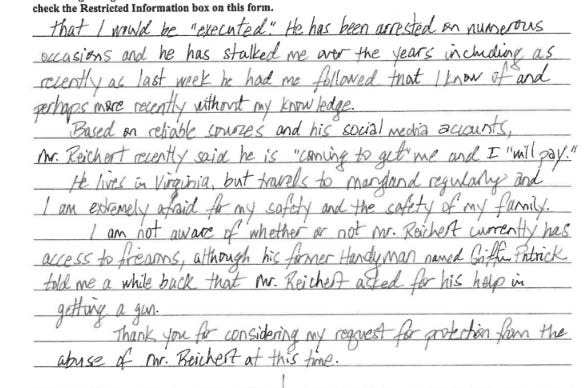 check the Restricted Information box on this form.
that I would be "executed." He has been arrested on numerous
occasions and he has stalked me over the years including as
recently as last week he had me followed that I know of and
perhaps more recently without my knowledge.
Based on reliable sources and his social media accounts,
Mr. Reichert recently said he is "coming to get" me and I "will pay."
He lives in Virginia, but travels to Maryland regularly and
I am extremely afraid for my safety and the safety of my family.
I am not aware of whether or not Mr. Reichert currently has
access to firearms, although his former Handyman named Griffin Patrick
told me a while back that Mr. Reichert asked for his help in
getting a gun.
Thank you for considering my request for protection from the
abuse of Mr. Reichert at this time.